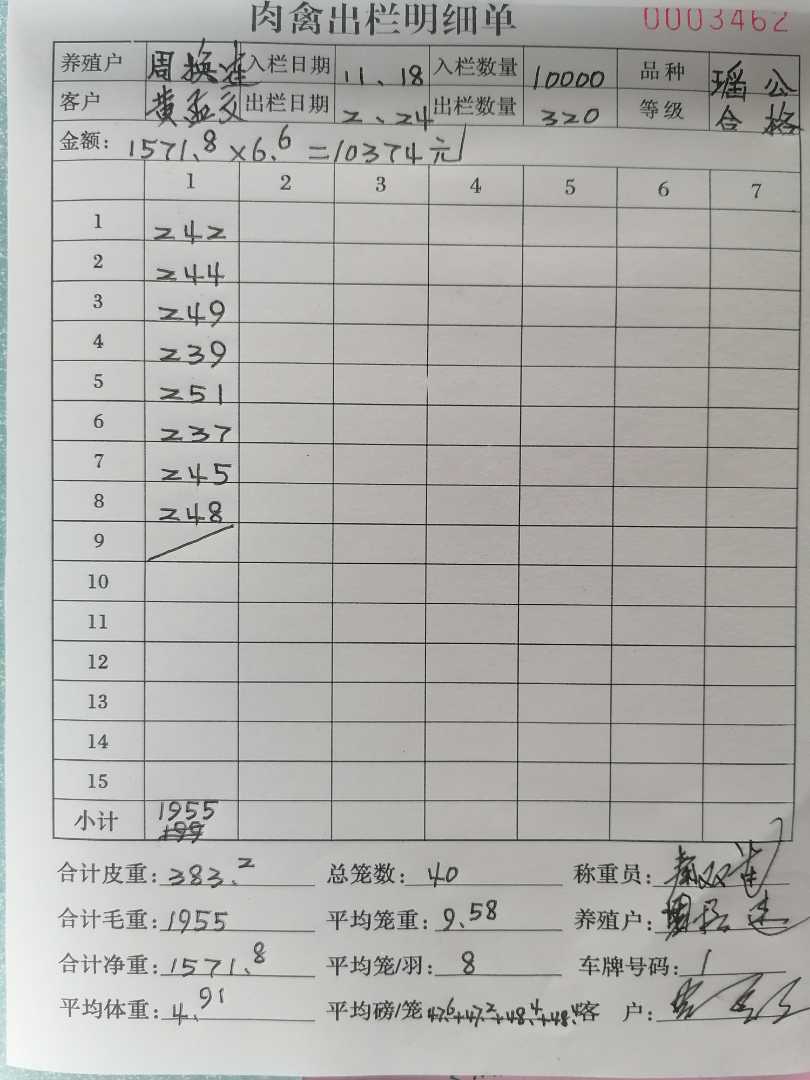 肉禽出栏明细单 0003462
养殖户 周换连 入栏日期 11、18 入栏数量 10000 品种 瑶公
客户 黄孟交 出栏日期 2、24 出栏数量 320 等级 合格
金额: 1571.8×6.6=10374元
1 2 3 4 5 6 7
1 242
2 244
3 249
4 239
5 251
6 237
7 245
8 248
9
10
11
12
13
14
15
小计 1955
合计皮重: 383.2 总笼数: 40 称重员:
合计毛重: 1955 平均笼重: 9.58 养殖户:
合计净重: 1571.8 平均笼/羽: 8 车牌号码: /
平均体重: 4.91 平均磅/笼 47.6+47.2+48.4+48.4 客户: